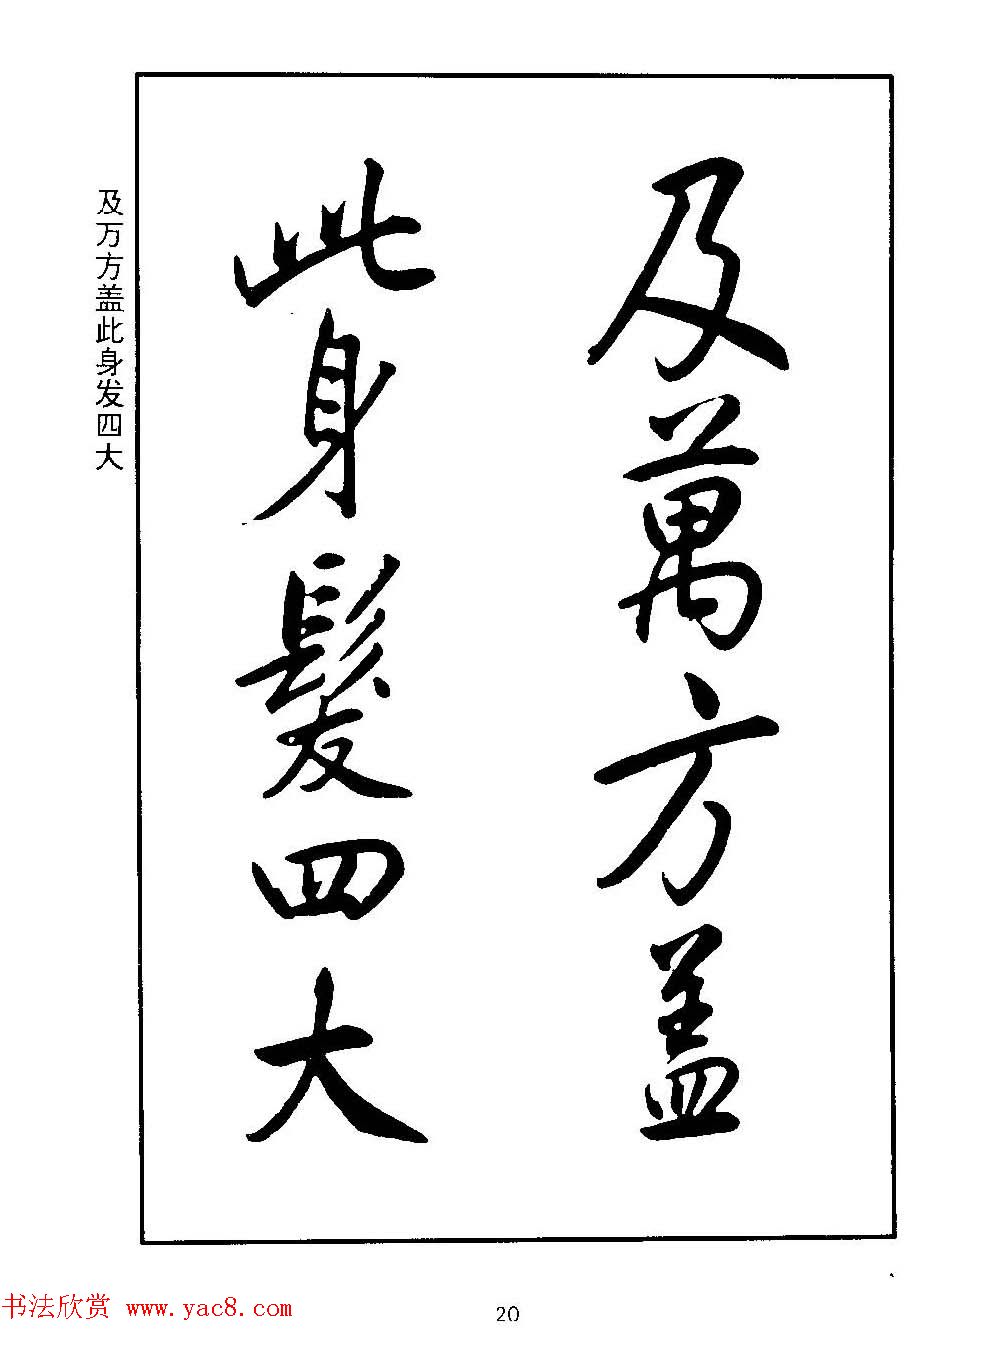 及萬方盖
此身髮四大
及万方盖此身发四大
书法欣赏 www.yac8.com
20